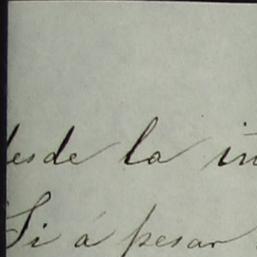 desde la in
Si á pesar